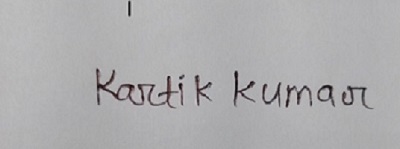 Kartik kumar